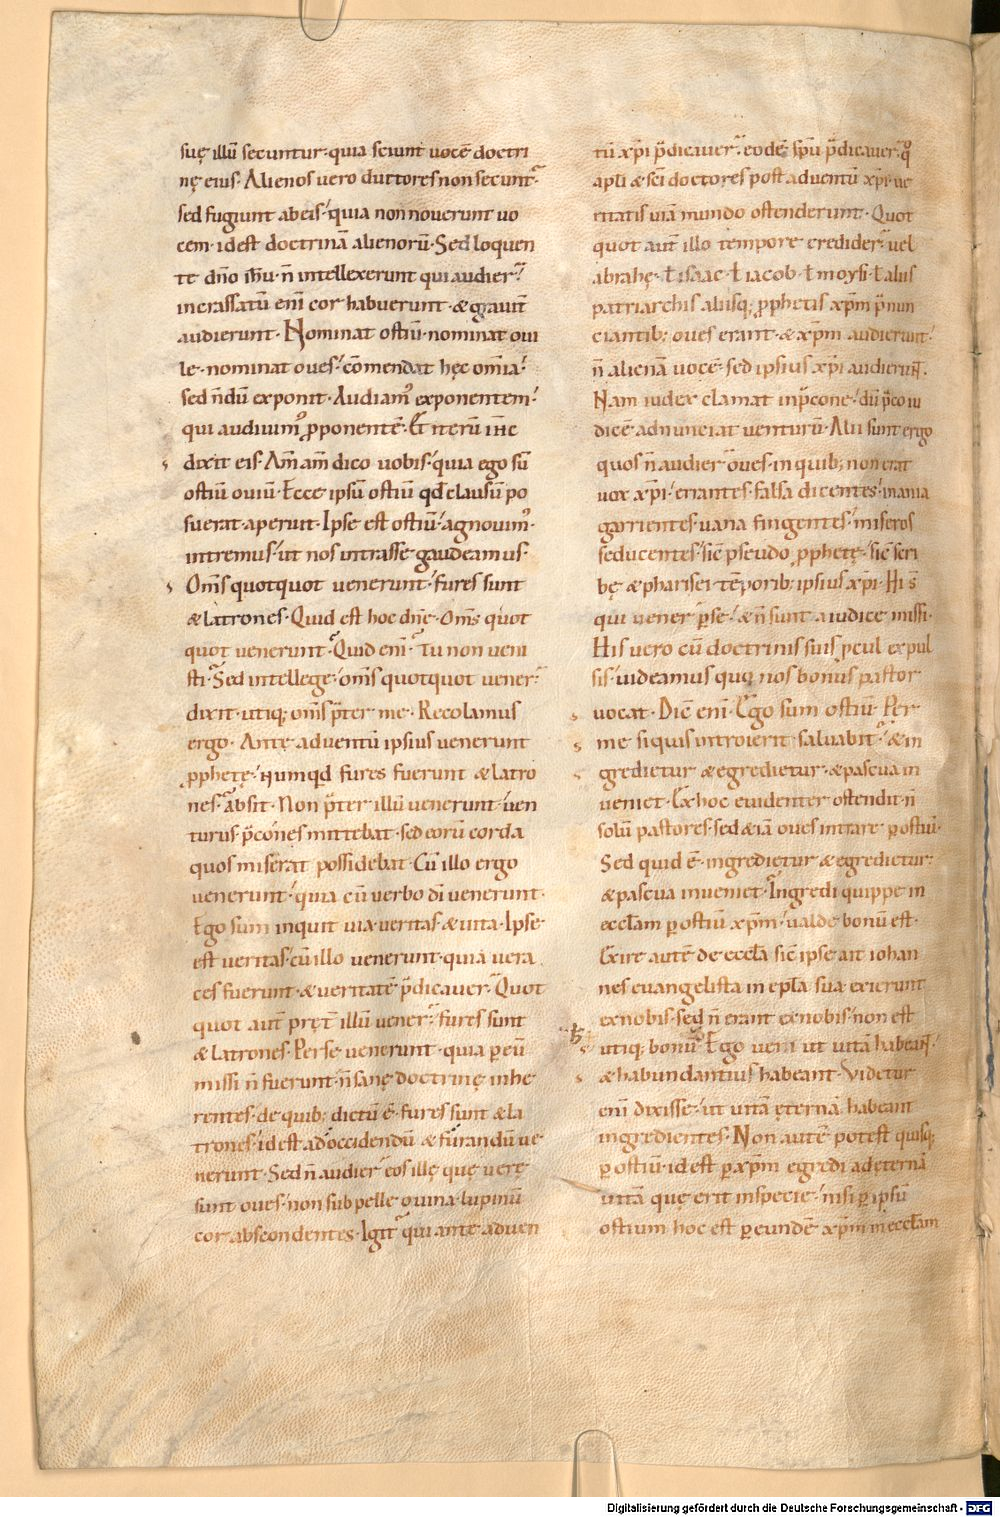 suę illū secuntur·quia sciunt uocē doctri
nę eius· Alienos uero ductores non secunt̃
sed fugiunt ab eis·quia non nouerunt uo
cem·id est doctrinā alienorū·Sed loquen
te dño ihū·ñ intellexerunt qui audier̃
incrassatū eni cor habuerunt·& grauit̃
audierunt· Nominat ostiū·nominat oui
le·nominat oues·cōmendat hęc omīa·
sed ñdū exponit·Audiam᷒ exponentem·
qui audiuim᷒ ꝓponentē·Et iterū ihc
dixit eis·Am̄ am̄ dico uobis·quia ego sū
ostiū ouiū·Ecce ipsū ostiū qd̄ clausū po
suerat·aperuit·Ipse est ostiū·agnouim᷒·
intremus·ut nos intrasse gaudeamus·
Om̄s quotquot uenerunt·fures sunt
& latrones·Quid est hoc dñe·Om̄s quot
quot uenerunt·Quid eni·Tu non ueni
sti·Sed intellege·om̄s quotquot uener̃
dixit·utiq; om̄s p̄ter me·Recolamus
ergo· Antę aduentū ipsius uenerunt
ꝓphetę·numqd fures fuerunt & latro
nes·absit·Non p̄ter illū uenerunt·uen
turus p̄cones mittebat·sed eorū corda
quos miserat possidebat·Cū illo ergo
uenerunt·quia cū uerbo dī uenerunt·
Ego sum inquit uia·ueritas·& uita·Ipse
est ueritas·cū illo uenerunt·quia uera
ces fuerunt·& ueritatē p̄dicauer̃·Quot
quot aut̄ pręt̄ illū uener̃·fures sunt
& latrones·Per se uenerunt·quia ꝑ eū
missi ñ fuerunt·ñ sanę doctrinę inhe
rentes·de quib; dictū ē·fures sunt & la
trones·id est ad occidendū & furandū ue
nerunt·Sed ñ audier̃ eos illę quę uerę
sunt oues·non sub pelle ouina·lupinū
cor abscondentes·Igit̃ qui ante aduen
tū xp̄i p̄dicauer̃·eodē sp̄u p̄dicauer̃·q̊
apli & sc̄i doctores post aduentū xp̄i·ue
ritatis uiā mundo ostenderunt·Quot
quot aut̄ illo tempore credider̃ uel
abrahę·ł isaac·ł iacob·ł moysi·ł aliis
patriarchis aliisq; ꝓphetis xp̄m p̄nun
ciantib; oues erant·& xp̄m audierunt·
ñ alienā uocē·sed ipsius xp̄i audierunt·
Nam iudex clamat in p̄cone·dū p̄co iu
dicē adnunciat uenturū·Alii sunt ergo
quos ñ audier̃ oues·in quib; non erat
uox xp̄i·errantes·falsa dicentes·inania
garrientes·uana fingentes·miseros
seducentes·sic̄ pseudo ꝓphetę·sic̄ scri
bę & pharisei·tēporib; ipsius xp̄i·Hi s̄
qui uener̃ ꝑ se·& ñ sunt a iudice missi·
His uero cū doctrinis suis ꝓcul expul
sis·uideamus quo nos bonus pastor
uocat·Dic̄ eni·Ego sum ostiū·Per
me si quis introierit saluabit̃·& in
gredietur & egredietur·& pascua in
ueniet·Ex hoc euidenter ostendit·ñ
solū pastores·sed & iā oues intrare ꝑ ostiū·
Sed quid ē·ingredietur & egredietur·
& pascua inueniet·Ingredi quippe in
eccłam ꝑ ostiū xp̄m·ualde bonū est·
Exire autē de eccła sic̄ ipse ait iohan
nes euangelista in epła sua·exierunt
ex nobis·sed ñ erant ex nobis·non est
utiq; bonū·Ego ueni ut uitā habeant·
& habundantius habeant·Videtur
eni dixisse·ut uitā ęternā habeant
ingredientes·Non autē potest quisq;
ꝑ ostiū·id est ꝑ xp̄m egredi ad ęternā
uitā quę erit in specie·nisi ꝑ ipsū
ostium hoc est ꝑ eundē xp̄m in eccłam
Digitalisierung gefördert durch die Deutsche Forschungsgemeinschaft - DFG